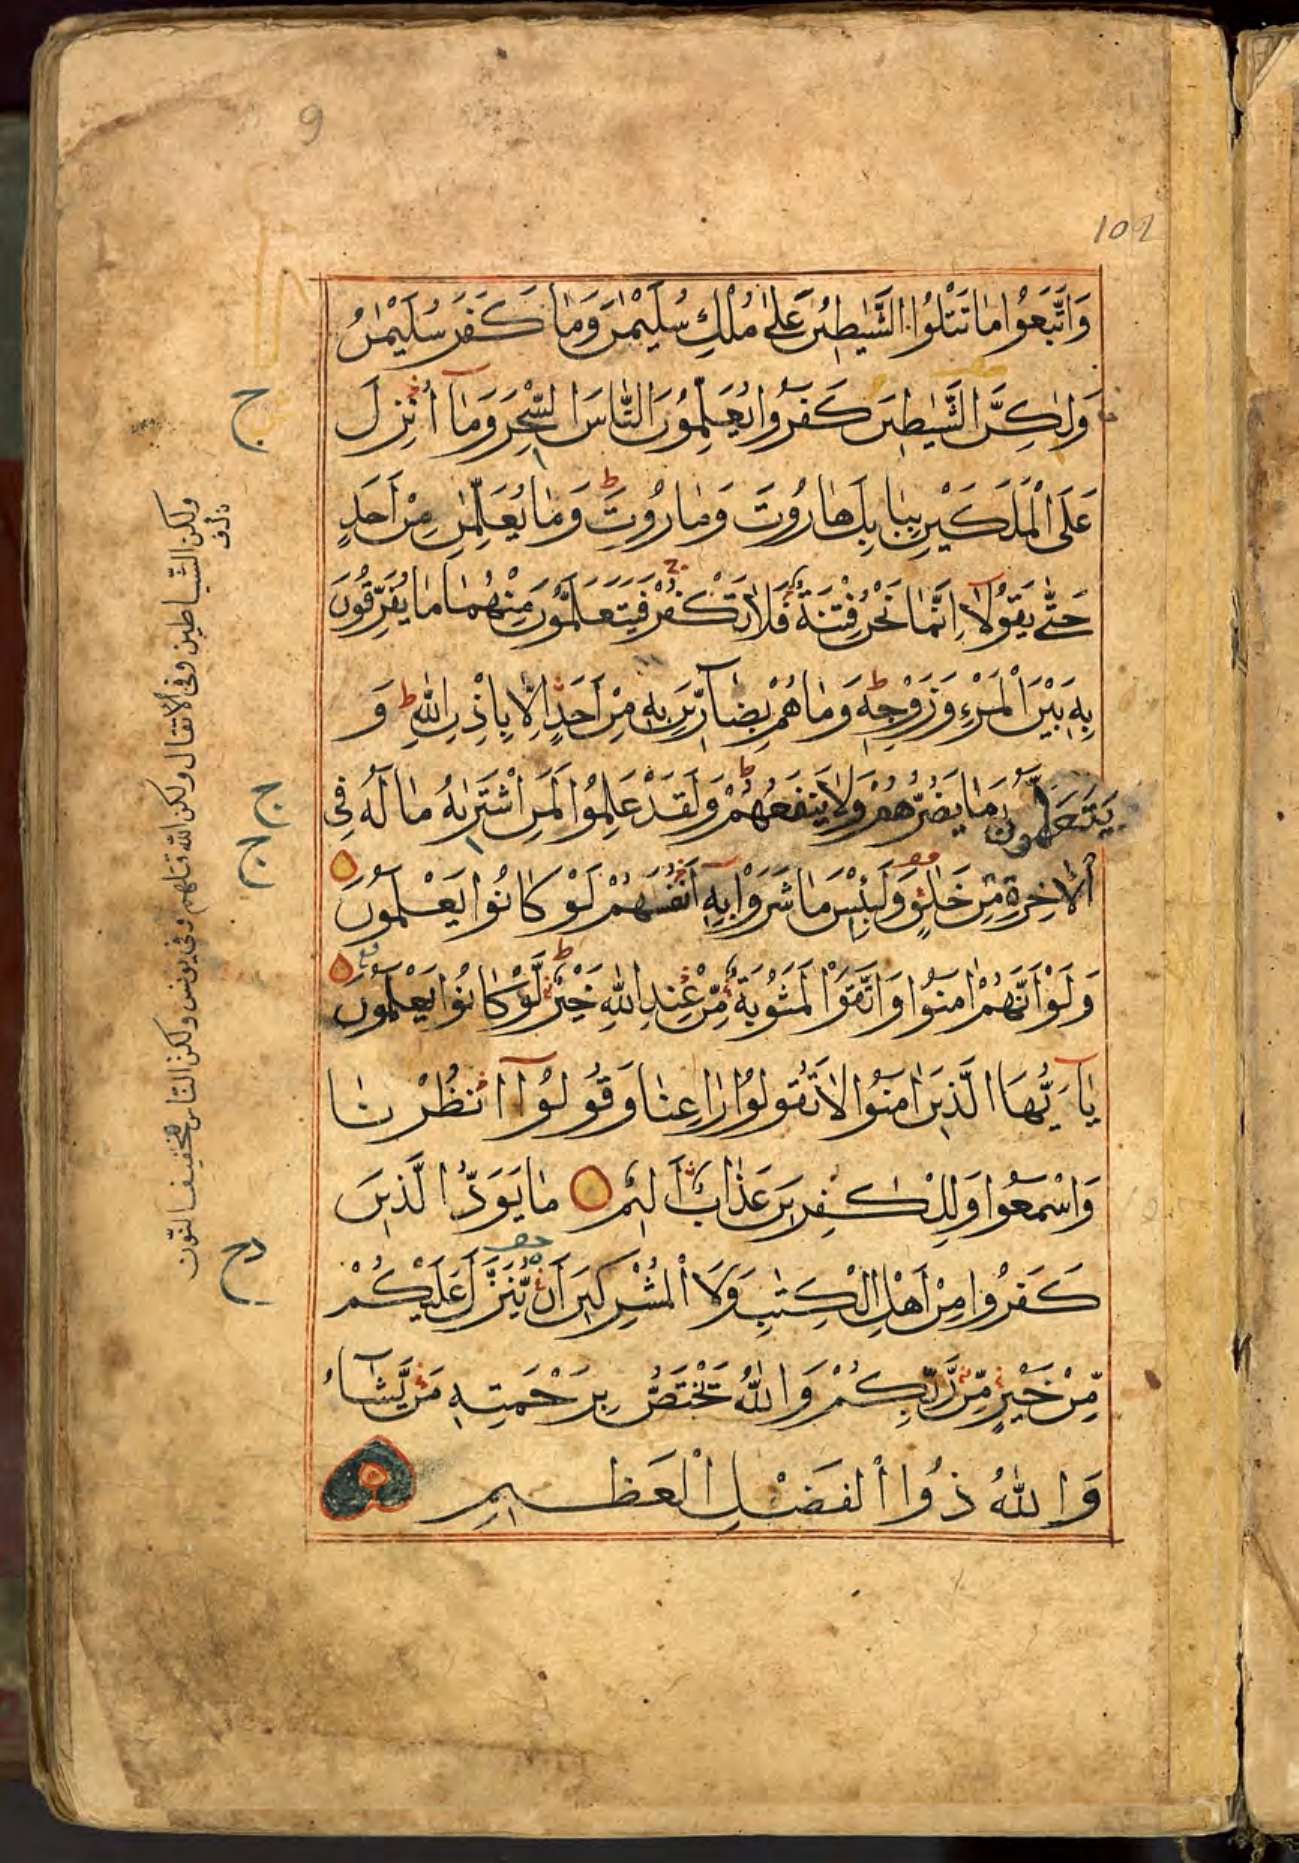 9
102
وَاتَّبَعُوا مَا تَتْلُوا الشَّيٰطِيْنُ عَلٰى مُلْكِ سُلَيْمٰنَ وَمَا كَفَرَ سُلَيْمٰنُ
وَلٰكِنَّ الشَّيٰطِيْنَ كَفَرُوا يُعَلِّمُوْنَ النَّاسَ السِّحْرَ وَمَآ اُنْزِلَ
عَلَى الْمَلَكَيْنِ بِبَابِلَ هَارُوْتَ وَمَارُوْتَ ط وَمَا يُعَلِّمٰنِ مِنْ اَحَدٍ
حَتّٰى يَقُوْلَآ اِنَّمَا نَحْنُ فِتْنَةٌ فَلَا تَكْفُرْ فَيَتَعَلَّمُوْنَ مِنْهُمَا مَا يُفَرِّقُوْنَ
بِهٖ بَيْنَ الْمَرْءِ وَزَوْجِهٖ ط وَمَا هُمْ بِضَآرِّيْنَ بِهٖ مِنْ اَحَدٍ اِلَّا بِاِذْنِ اللّٰهِ ط وَ
يَتَعَلَّمُوْنَ مَا يَضُرُّهُمْ وَلَا يَنْفَعُهُمْ ط وَلَقَدْ عَلِمُوا لَمَنِ اشْتَرٰىهُ مَا لَهٗ فِى
الْاٰخِرَةِ مِنْ خَلٰقٍ وَلَبِئْسَ مَا شَرَوْا بِهٖ اَنْفُسَهُمْ لَوْ كَانُوا يَعْلَمُوْنَ
وَلَوْ اَنَّهُمْ اٰمَنُوا وَاتَّقَوْا لَمَثُوْبَةٌ مِّنْ عِنْدِ اللّٰهِ خَيْرٌ ط لَّوْ كَانُوا يَعْلَمُوْنَ
يٰٓاَيُّهَا الَّذِيْنَ اٰمَنُوا لَا تَقُوْلُوْا رَاعِنَا وَقُوْلُوْا انْظُرْنَا
وَاسْمَعُوا وَلِلْكٰفِرِيْنَ عَذَابٌ اَلِيْمٌ مَا يَوَدُّ الَّذِيْنَ
كَفَرُوا مِنْ اَهْلِ الْكِتٰبِ وَلَا الْمُشْرِكِيْنَ اَنْ يُّنَزَّلَ عَلَيْكُمْ
مِّنْ خَيْرٍ مِّنْ رَّبِّكُمْ وَاللّٰهُ يَخْتَصُّ بِرَحْمَتِهٖ مَنْ يَّشَآءُ
وَاللّٰهُ ذُوا الْفَضْلِ الْعَظِيْمِ
ولكن الشياطين وفى الانفال ولكن الله قتلهم وفى يونس ولكن الناس بتخفيف النون
ج
ج
ج